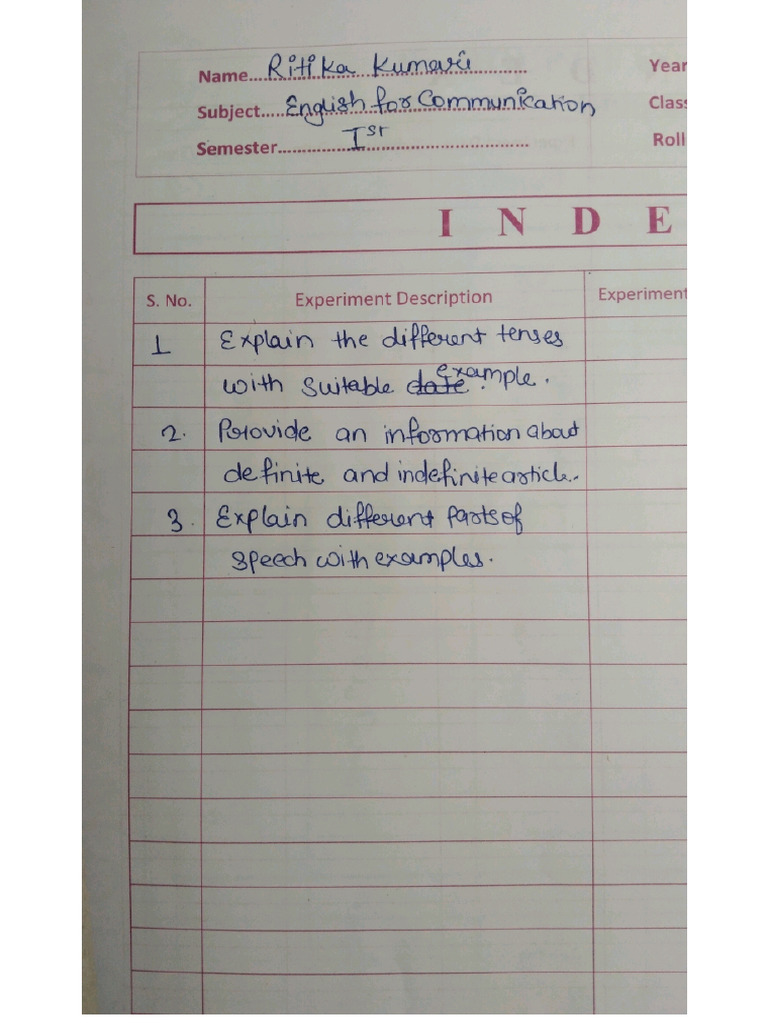 Name....Ritika Kumari....
Year
Subject.....English for Communication
Clas
Semester....Ist....
Roll
INDE
S. No.
Experiment Description
Experiment
1 Explain the different tenses
with suitable date example.
2. Provide an information about
definite and indefinite article.
3. Explain different parts of
speech with examples.